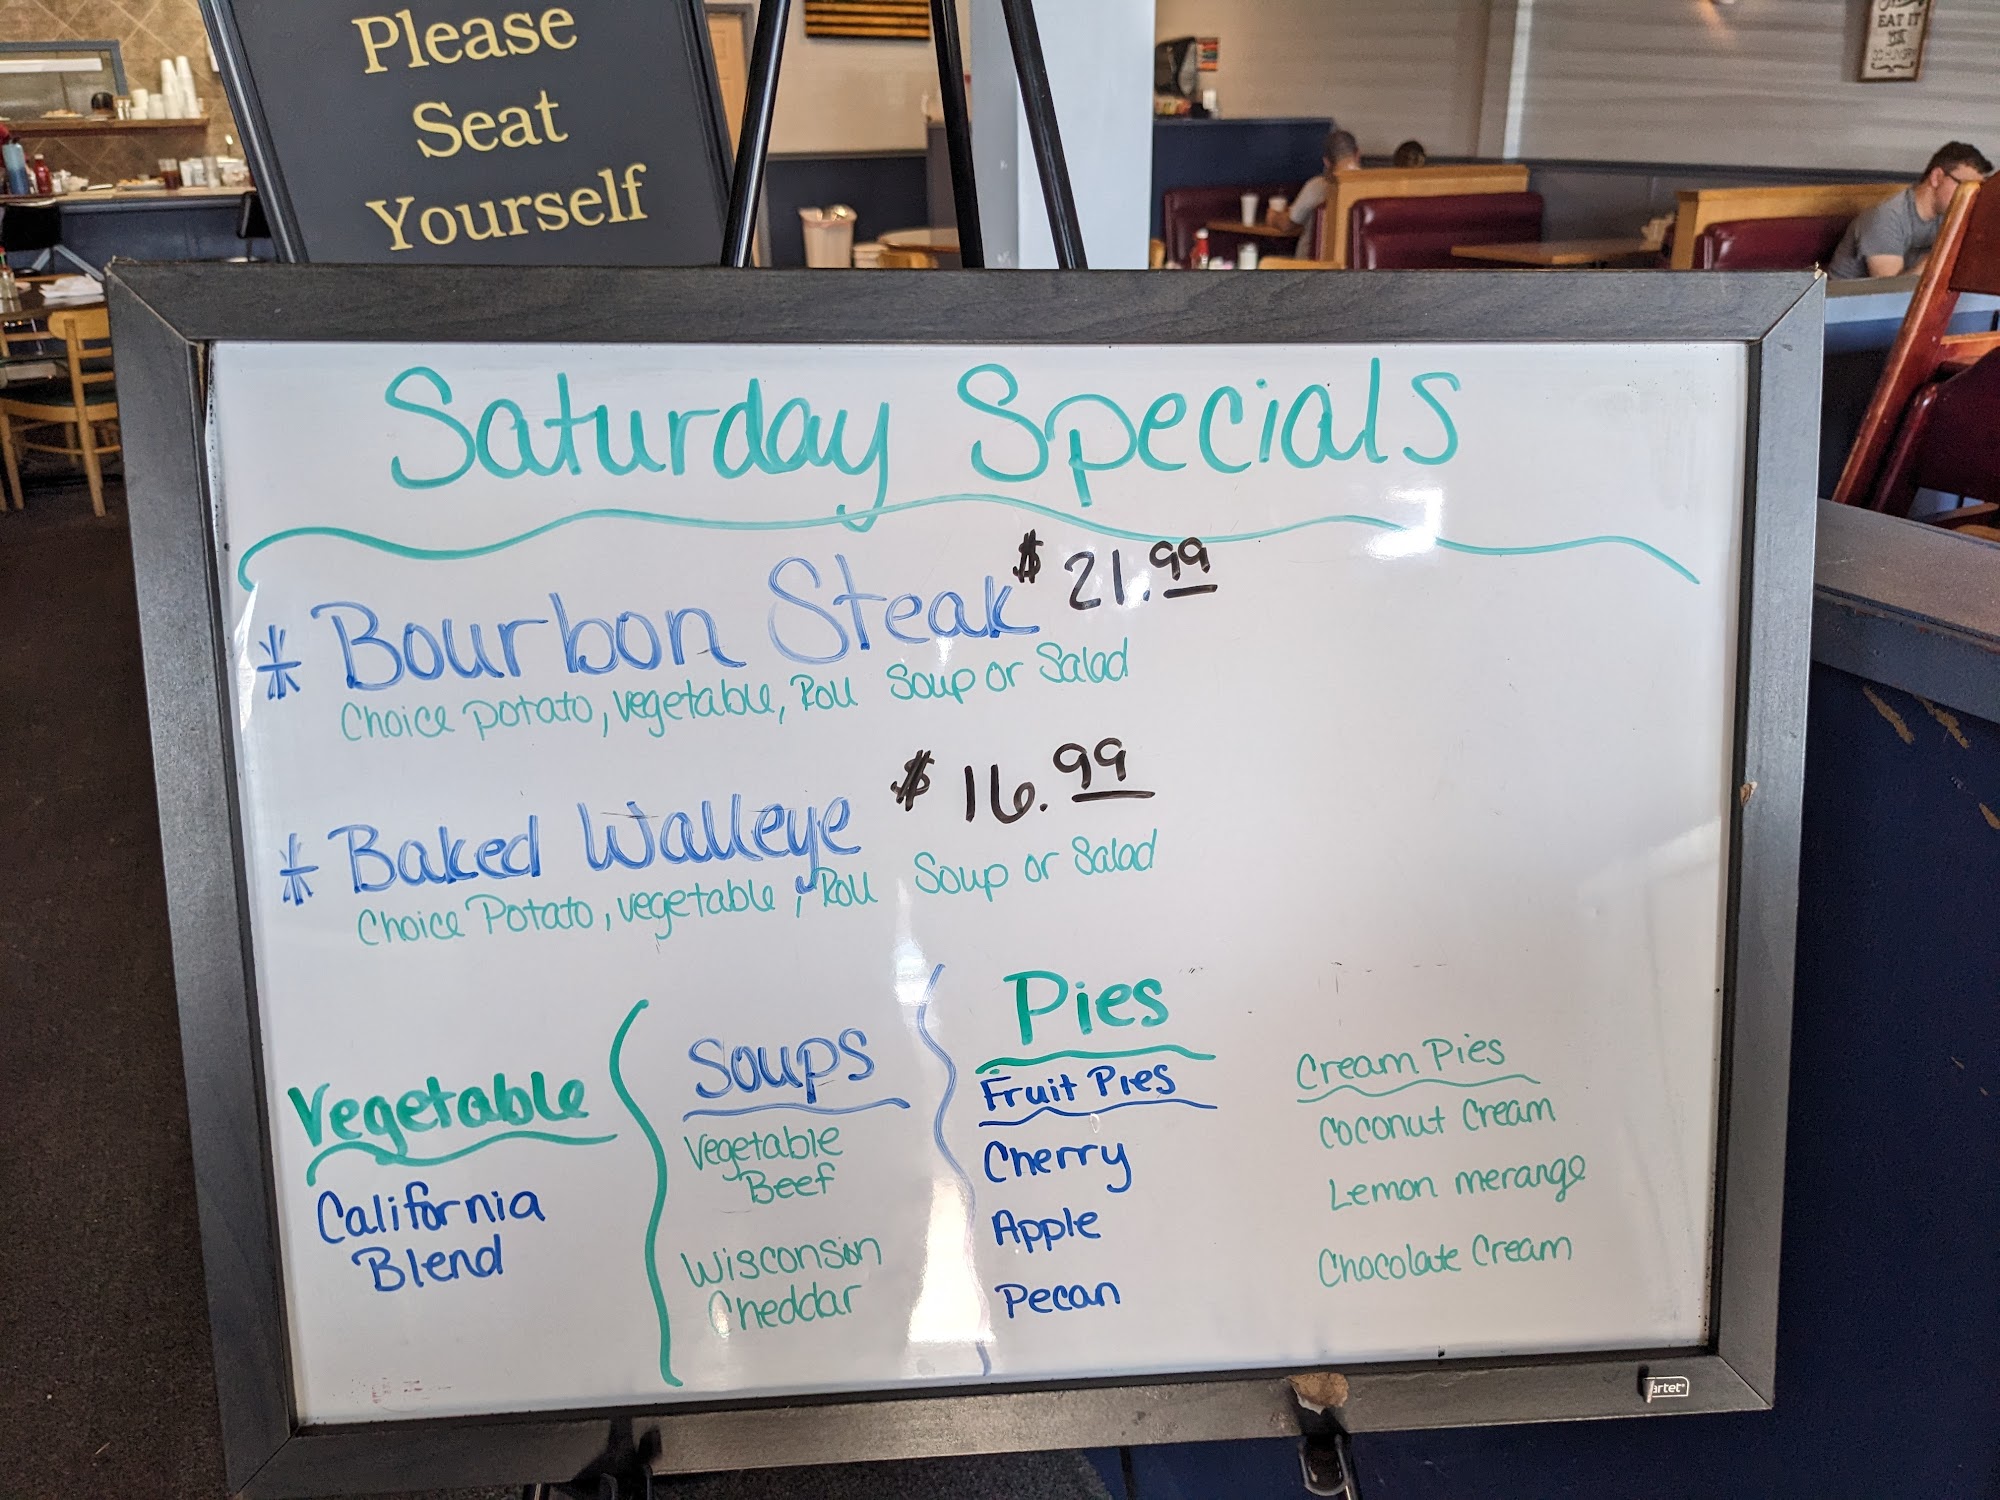 Please
Seat
Yourself
EAT IT
Saturday Specials
* Bourbon Steak $21.99
Choice potato, vegetable, Roll Soup or Salad
* Baked Walleye $16.99
Choice Potato, vegetable, Roll Soup or Salad
Vegetable
California
Blend
Soups
Vegetable
Beef
Wisconsin
Cheddar
Pies
Fruit Pies
Cherry
Apple
Pecan
Cream Pies
Coconut Cream
Lemon merange
Chocolate Cream